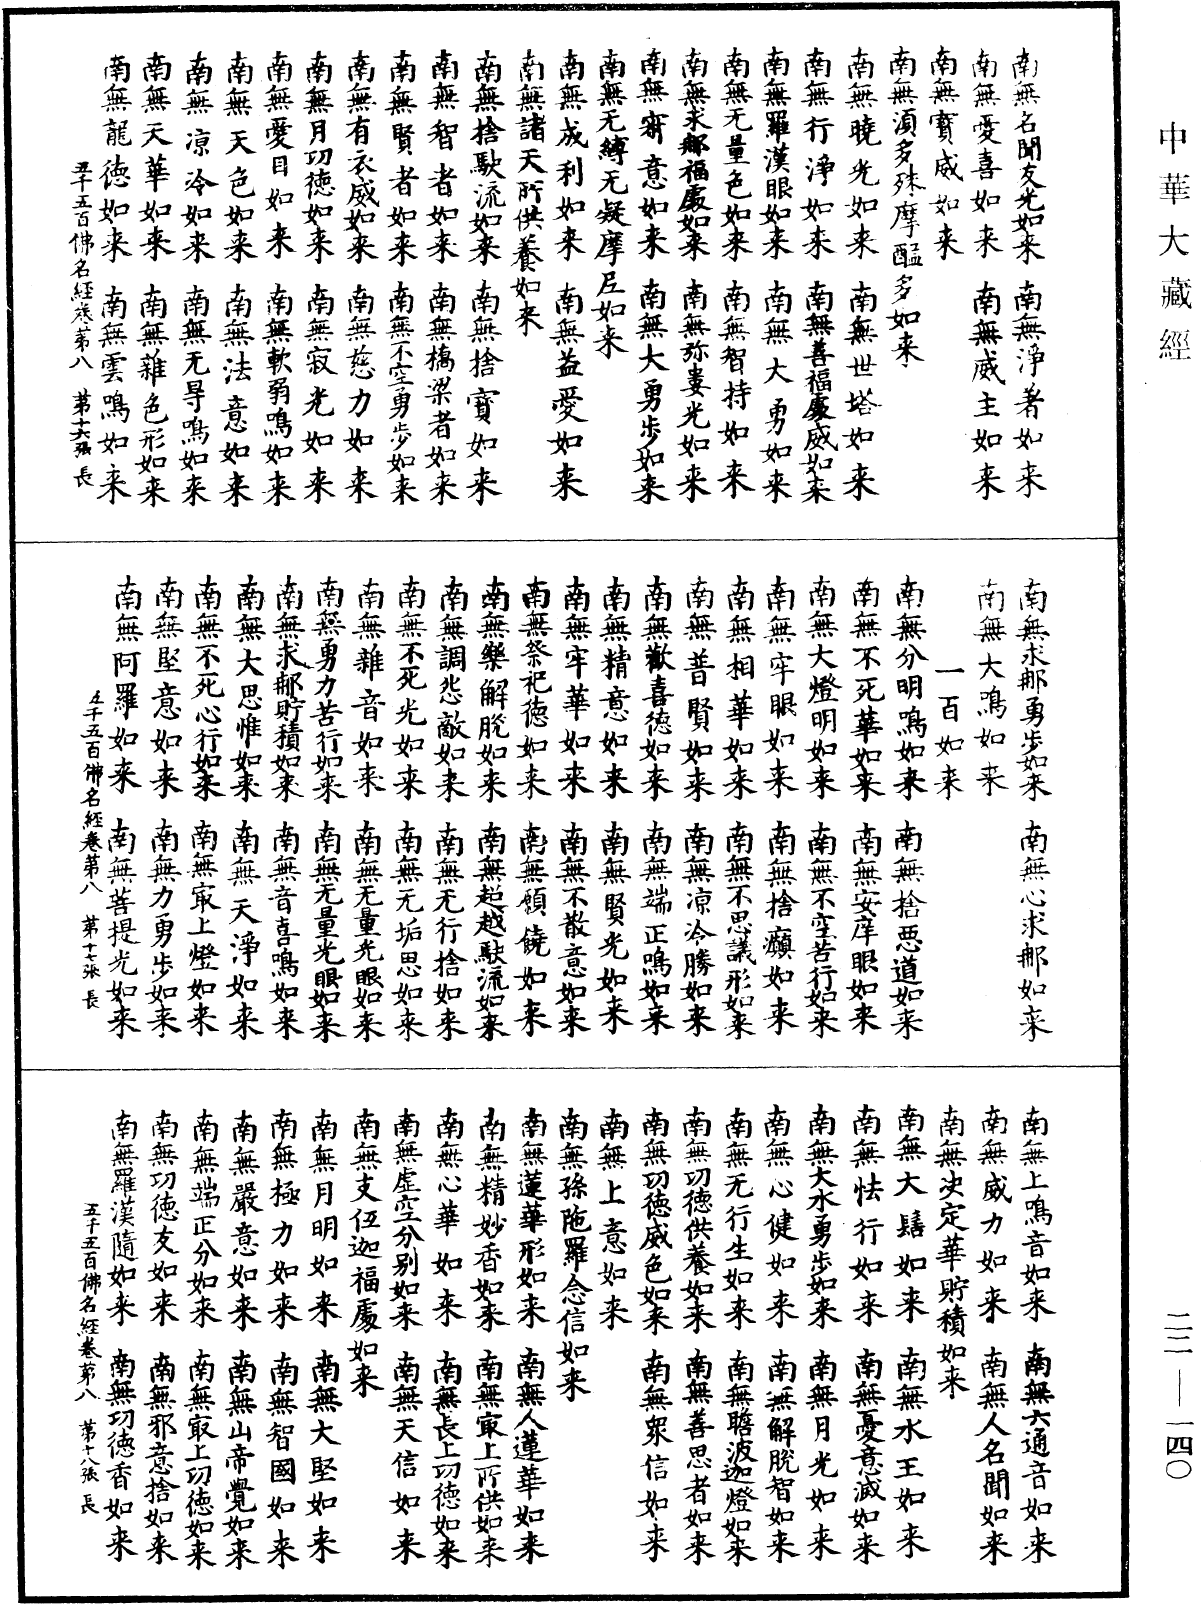 中華大藏經
二二—一四〇
南無名聞友光如来 南無淨著如来
南無憂喜如来 南無威主如来
南無寶威如来
南無湏多殊摩醯多如来
南無曉光如来 南無世塔如来
南無行淨如来 南無善福處威如来
南無羅漢眼如来 南無大勇如来
南無无量色如来 南無智持如来
南無求郍福處如来 南無弥婁光如来
南無竆意如来 南無大勇步如来
南無无縛无凝摩尼如来
南無成利如来 南無益愛如来
南無諸天所供養如来
南無捨駃流如来 南無捨寶如来
南無智者如来 南無槗梁者如来
南無賢者如来 南無不空勇步如来
南無有衣威如来 南無慈力如来
南無月功徳如来 南無寂光如来
南無愛目如来 南無軟弱鳴如来
南無天色如来 南無法意如来
南無凉冷如来 南無无㝵鳴如来
南無天華如来 南無雜色形如来
南無龍徳如来 南無雲鳴如来
五千五百佛名經卷第八 第十六張 長
南無求郍勇步如来 南無心求郍如来
南無大鳴如来
一百如来
南無分明鳴如来 南無捨悪道如来
南無不死華如来 南無安庠眼如来
南無大燈明如来 南無不空苦行如来
南無牢眼如来 南無捨癡如来
南無相華如来 南無不思議形如来
南無普賢如来 南無凉冷勝如来
南無歡喜德如来 南無端正鳴如来
南無精意如来 南無賢光如来
南無牢華如来 南無不散意如来
南無祭祀徳如来 南無願饒如来
南無樂解脫如来 南無超越駃流如来
南無調怨敵如来 南無无行捨如来
南無不死光如来 南無无垢思如来
南無雜音如来 南無无量光眼如来
南無勇力苦行如来 南無无量光眼如来
南無求郍貯積如来 南無音喜鳴如来
南無大思惟如来 南無天淨如来
南無不死心行如来 南無冣上燈如来
南無堅意如来 南無力勇步如来
南無阿羅如来 南無菩提光如来
五千五百佛名經卷第八 第十七張 長
南無上鳴音如来 南無六通音如来
南無威力如来 南無人名聞如来
南無决定華貯積如来
南無大鬚如来 南無水王如来
南無怯行如来 南無憂意滅如来
南無大水勇步如来 南無月光如来
南無心健如来 南無解脫智如来
南無无行生如来 南無瞻波迦燈如来
南無功德供養如来 南無善思者如来
南無功德威色如来 南無衆信如来
南無上意如来
南無孫陁羅念信如来
南無蓮華形如来 南無人蓮華如来
南無精妙香如来 南無冣上所供如来
南無心華如来 南無長上功徳如来
南無虚空分别如来 南無天信如来
南無支伍迦福處如来
南無月明如来 南無大堅如来
南無極力如来 南無智國如来
南無嚴意如来 南無山帝覺如来
南無端正分如来 南無冣上功徳如来
南無功徳支如来 南無邪意捨如来
南無羅漢隨如来 南無功徳香如来
五千五百佛名經卷第八 第十八張 長